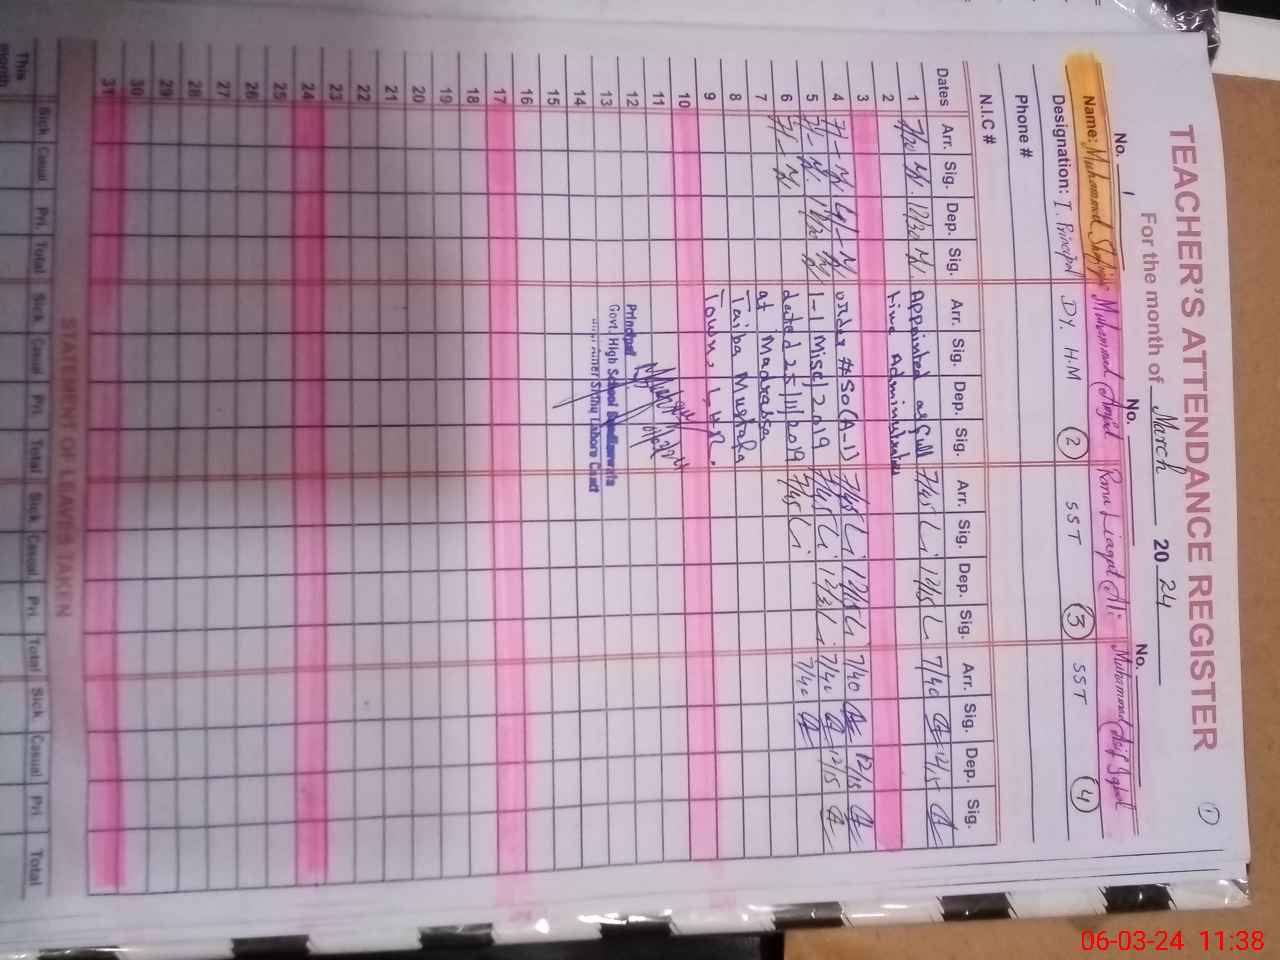 TEACHER'S ATTENDANCE REGISTER
For the month of March 2024
1
No. 1 No. No.
Name: Muhammad Shafiq Muhammad Amjad Rana Liaqat Ali Muhammad Asif Iqbal
Designation: I. Principal DY. H.M 2 SST 3 SST 4
Phone #
N.I.C #
Dates Arr. Sig. Dep. Sig. Arr. Sig. Dep. Sig. Arr. Sig. Dep. Sig. Arr. Sig. Dep. Sig.
1 7/30 12/30 Appointed as full 7/45 12/15 7/40 12/15
2 time Administrator
3
4 order # SO(A-1) 7/45 12/15 7/40 12/15
5 1-1 Misc/2019 7/45 12/15 7/40 12/15
6 dated 25/11/2019 7/45 7/40
7 at Madrassa
8 Taiba Mustafa
9 Town, LHR.
10
11
12 Principal
13 Govt. High School
14 Lahore Cantt
15
16
17
18
19
20
21
22
23
24
25
26
27
28
29
30
31
STATEMENT OF LEAVES TAKEN
Sick Casual Pri. Total Sick Casual Pri. Total Sick Casual Pri. Total Sick Casual Pri. Total
This month
06-03-24 11:38